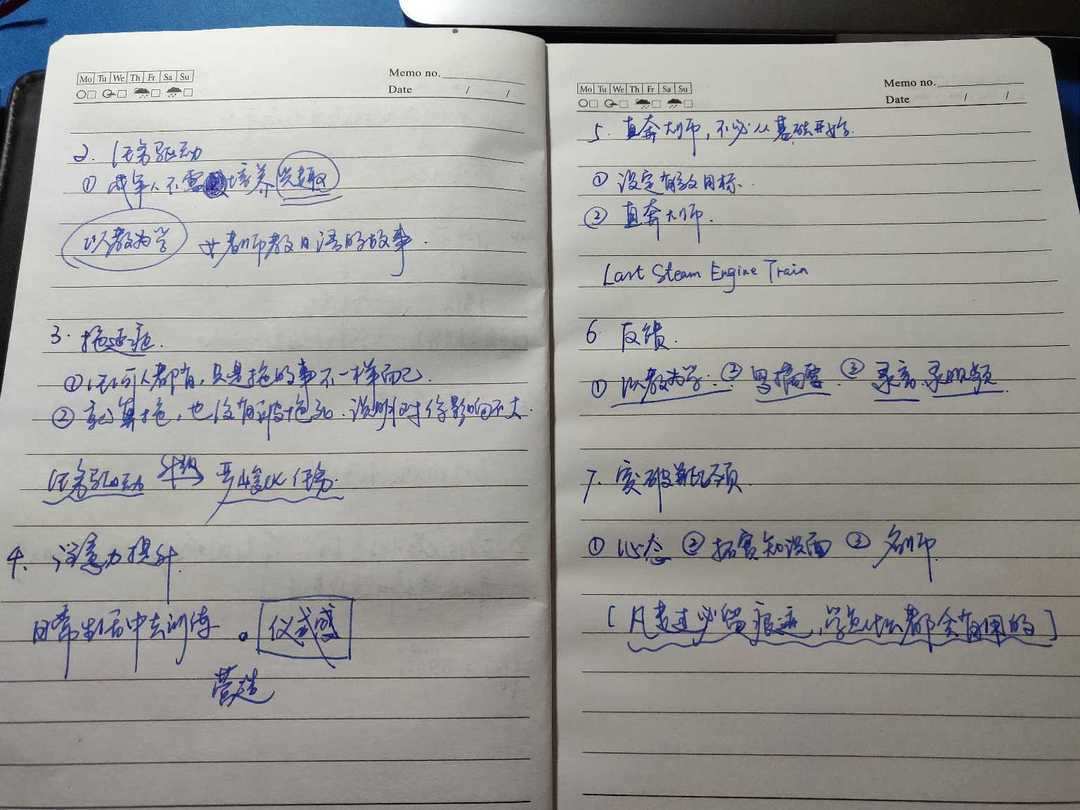 Mo Tu We Th Fr Sa Su
Memo no.
Date / /
2. 任务驱动
① 成年人不需 培养兴趣
以教为学 女老师教日语的故事.
3. 拖延症.
①任何人都有,只是拖的事不一样而已.
② 就算拖,也没有被拖死.说明对你影响不大.
任务驱动 升级 严峻化任务.
4、注意力提升
日常生活中去训练 。仪式感
营造
Mo Tu We Th Fr Sa Su
Memo no.
Date / /
5. 直奔大师,不必从基础开始.
① 设定有效目标.
② 直奔大师.
Last Steam Engine Train
6 反馈.
① 以教为学. ② 写摘要 ③ 录音录视频
7. 突破瓶颈.
① 心态 ② 拓宽知识面 ③ 名师.
[凡走过必留痕迹,学什么都会有用的]